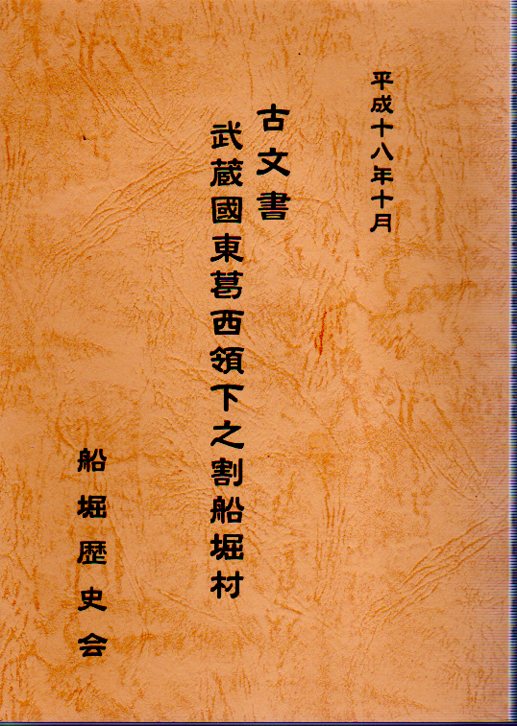 平成十八年十月
古文書
武蔵國東葛西領下之割船堀村
船堀歴史会